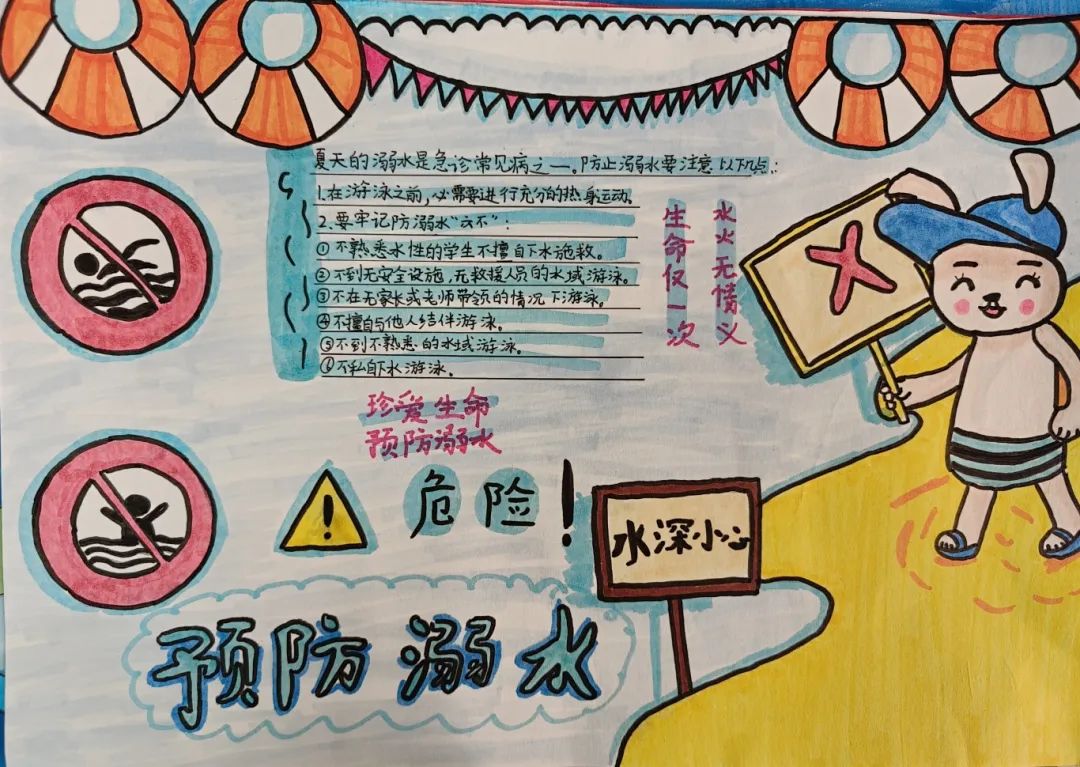 夏天的溺水是急诊常见病之一。防止溺水要注意以下几点:
1.在游泳之前,必需要进行充分的热身运动。
2.要牢记防溺水“六不”:
①不熟悉水性的学生不擅自下水施救。
②不到无安全设施,无救援人员的水域游泳。
③不在无家长或老师带领的情况下游泳。
④不擅自与他人结伴游泳。
⑤不到不熟悉的水域游泳。
⑥不私自下水游泳。
水火无情义
生命仅一次
珍爱生命
预防溺水
危险!
水深小心
预防溺水